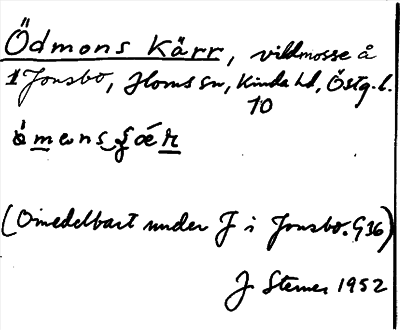 Ödmons Kärr, vildmosse å
1 Jonsbo, Horns sn, Kinda hd, Östg. l.
10
(Omedelbart under J i Jonsbo. G36)
J Sterner 1952